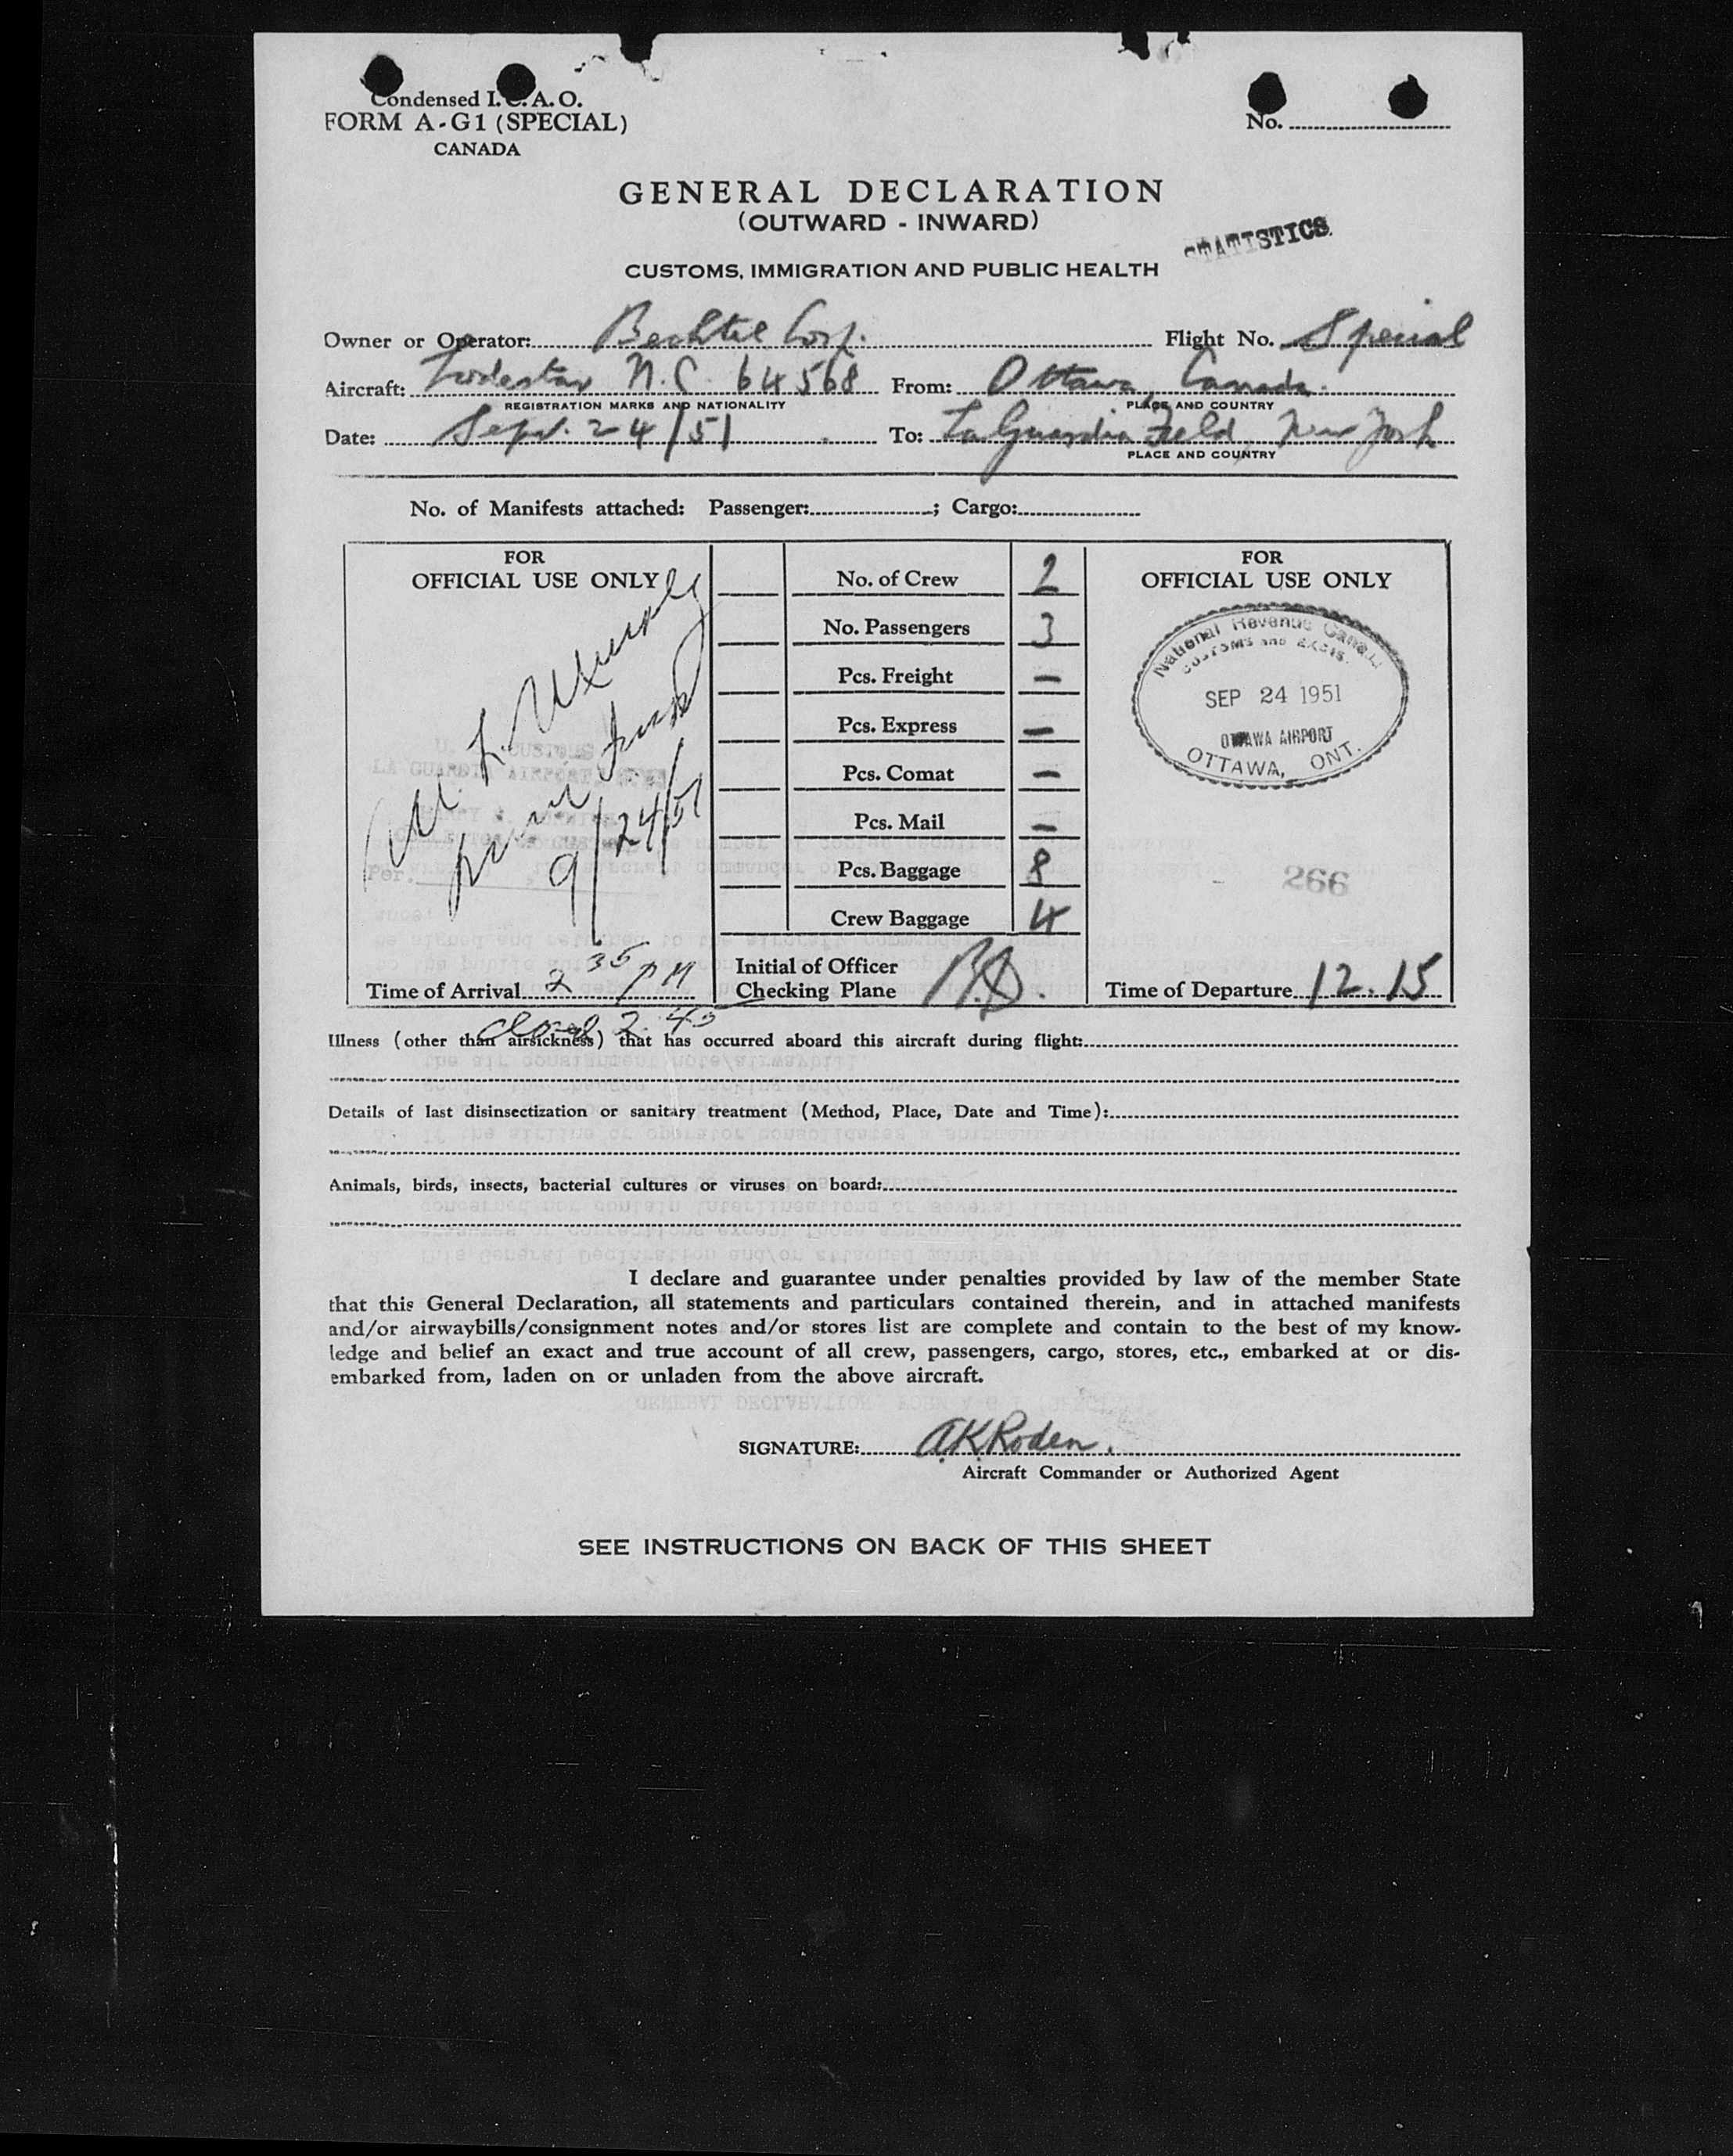 Condensed I.C.A.O.
FORM A-G1 (SPECIAL)
CANADA
No.
GENERAL DECLARATION
(OUTWARD - INWARD)
STATISTICS
CUSTOMS, IMMIGRATION AND PUBLIC HEALTH
Owner or Operator: Bechtel Corp. Flight No. Special
Aircraft: Lodestar N.C. 64568 From: Ottawa, Canada.
REGISTRATION MARKS AND NATIONALITY PLACE AND COUNTRY
Date: Sept. 24/51 To: La Guardia Field, New York
PLACE AND COUNTRY
No. of Manifests attached: Passenger: ; Cargo:
FOR
OFFICIAL USE ONLY
No. of Crew 2
No. Passengers 3
Pcs. Freight —
Pcs. Express —
Pcs. Comat —
Pcs. Mail —
Pcs. Baggage 8
Crew Baggage 4
FOR
OFFICIAL USE ONLY
National Revenue Canada
Customs and Excise
SEP 24 1951
OTTAWA AIRPORT
OTTAWA, ONT.
LA GUARDIA AIRPORT
Per.
9/24/51
266
Time of Arrival 2 35 PM
Initial of Officer
Checking Plane
Time of Departure 12.15
closed 2.45
Illness (other than airsickness) that has occurred aboard this aircraft during flight:
Details of last disinsectization or sanitary treatment (Method, Place, Date and Time):
Animals, birds, insects, bacterial cultures or viruses on board:
I declare and guarantee under penalties provided by law of the member State
that this General Declaration, all statements and particulars contained therein, and in attached manifests
and/or airwaybills/consignment notes and/or stores list are complete and contain to the best of my know-
ledge and belief an exact and true account of all crew, passengers, cargo, stores, etc., embarked at or dis-
embarked from, laden on or unladen from the above aircraft.
SIGNATURE: A.K. Roden.
Aircraft Commander or Authorized Agent
SEE INSTRUCTIONS ON BACK OF THIS SHEET